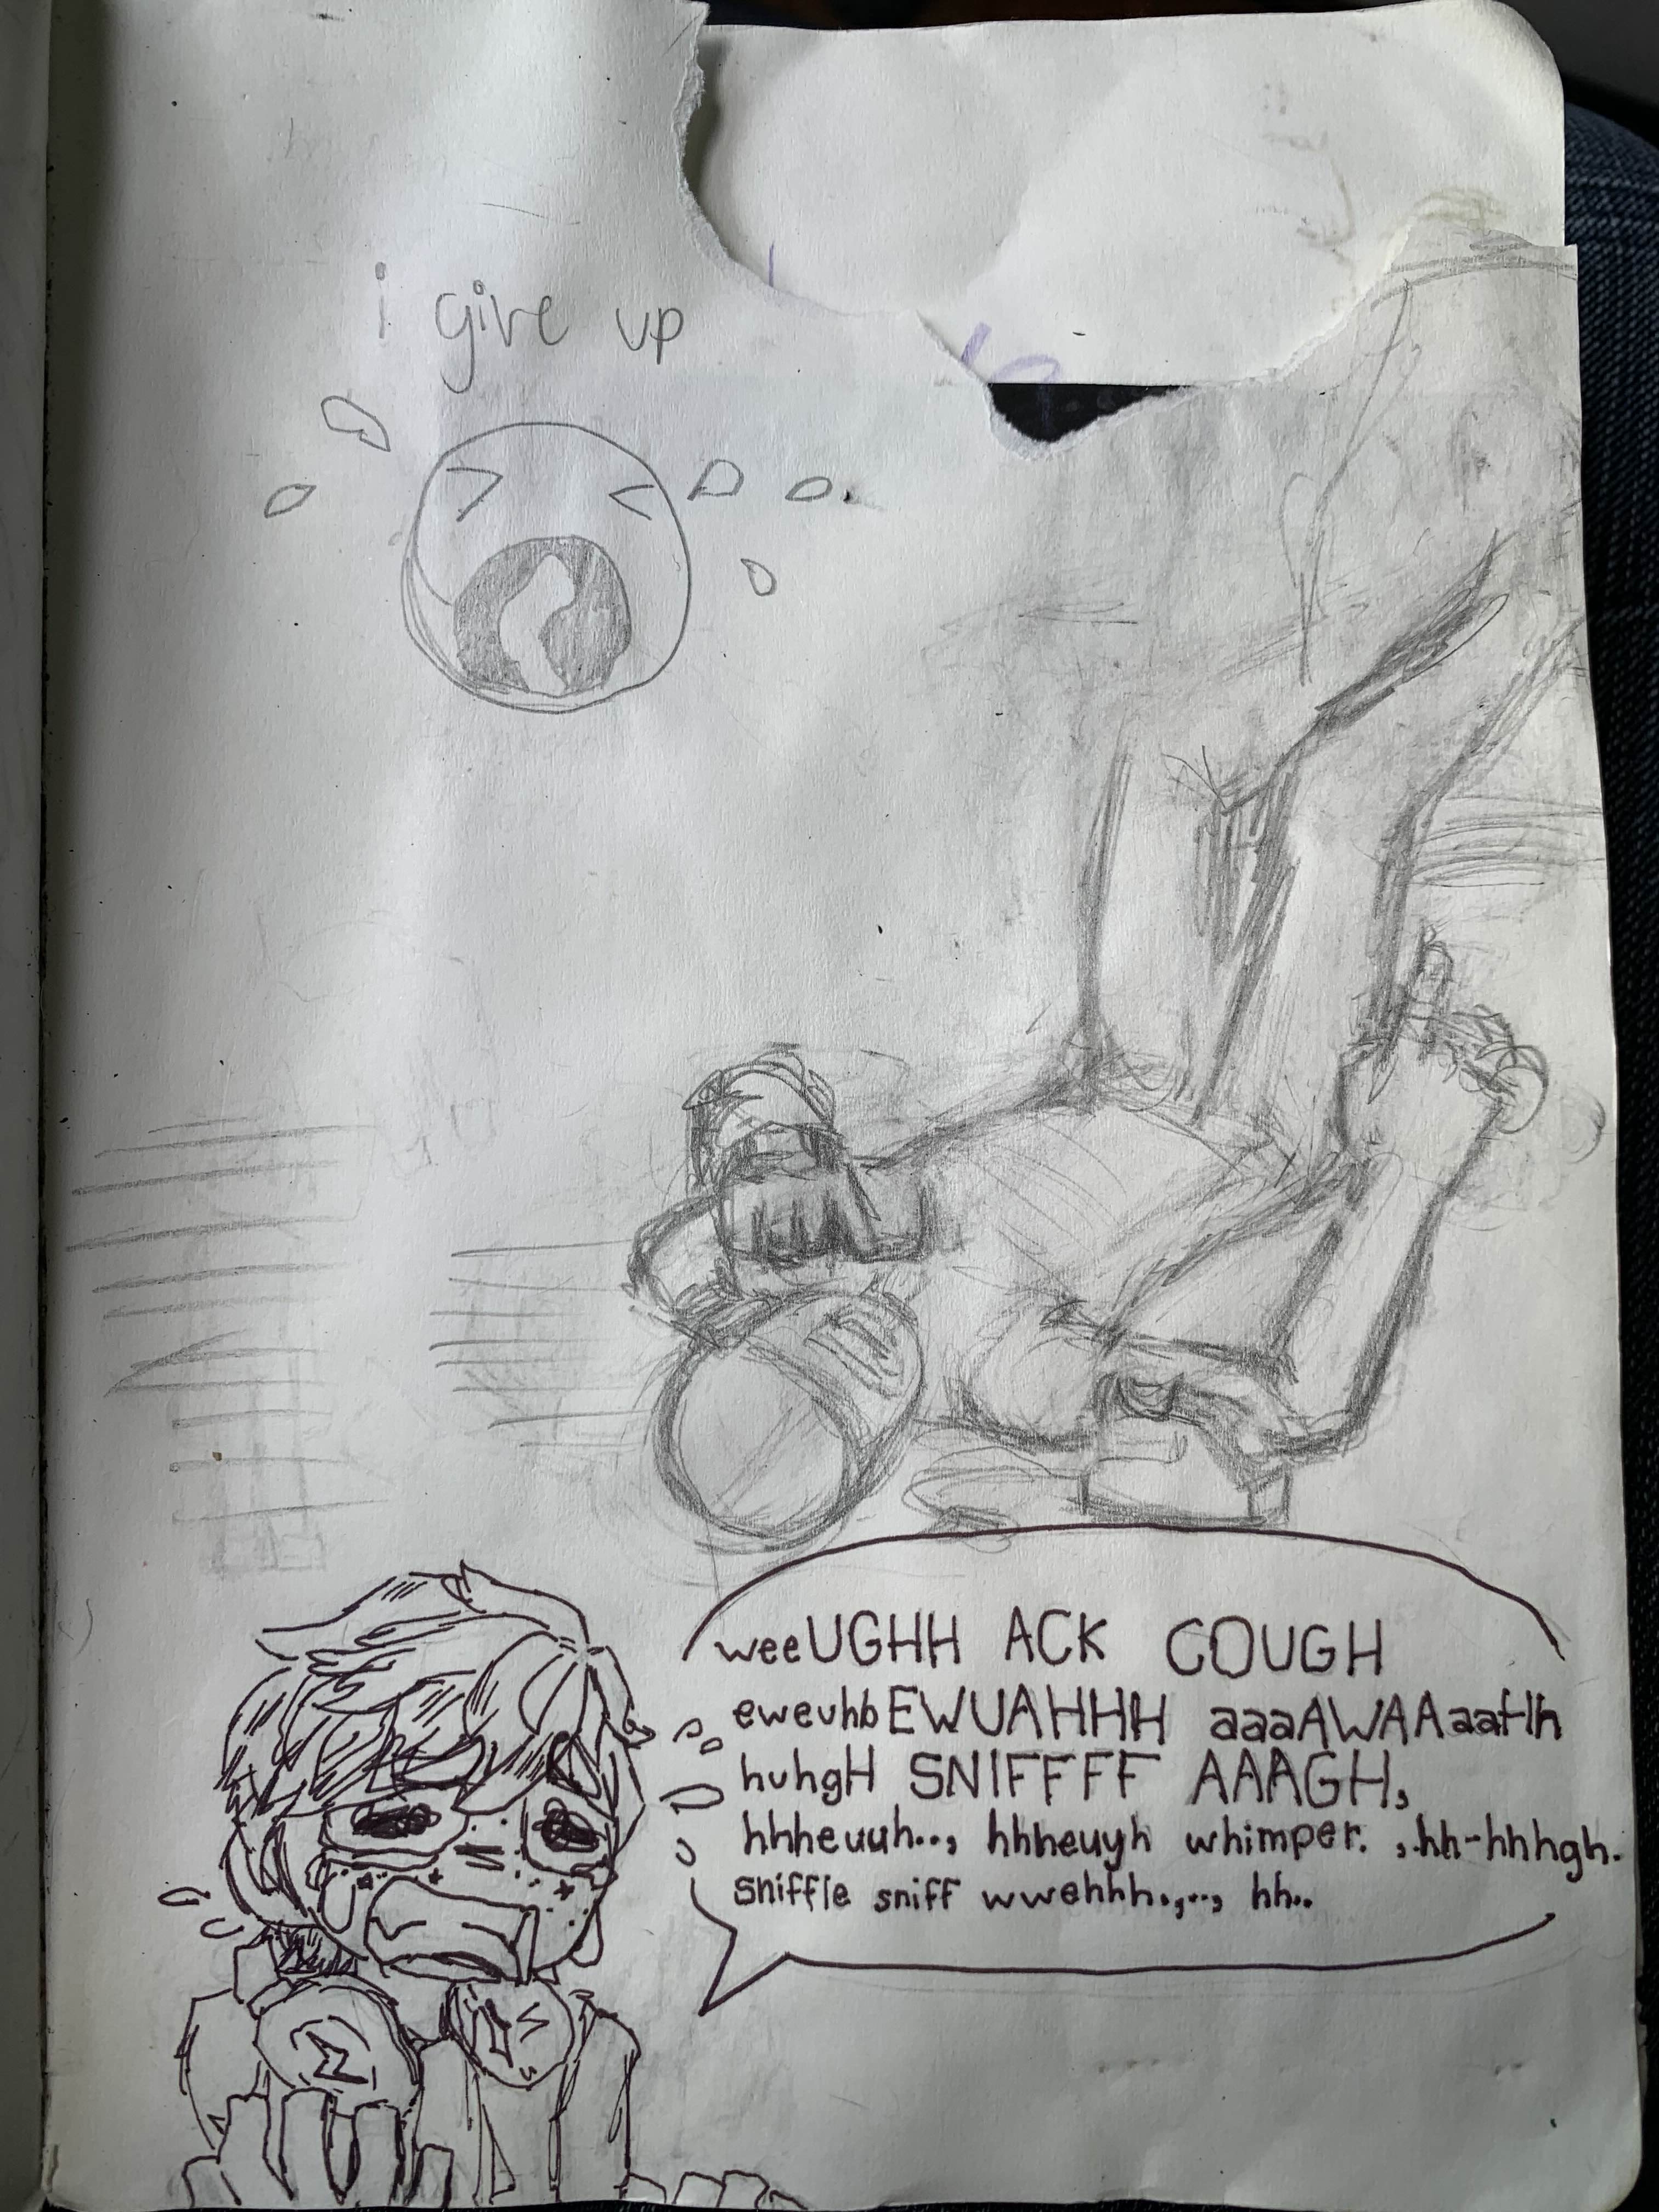 i give up
weeUGHH ACK COUGH
eweuhbEWUAHHH aaaAWAAaaaHh
huhgH SNIFFFF AAAGH,
hhheuuh.., hhheuyh whimper. ,.hh-hhhgh.
sniffle sniff wwehhh.,..., hh..